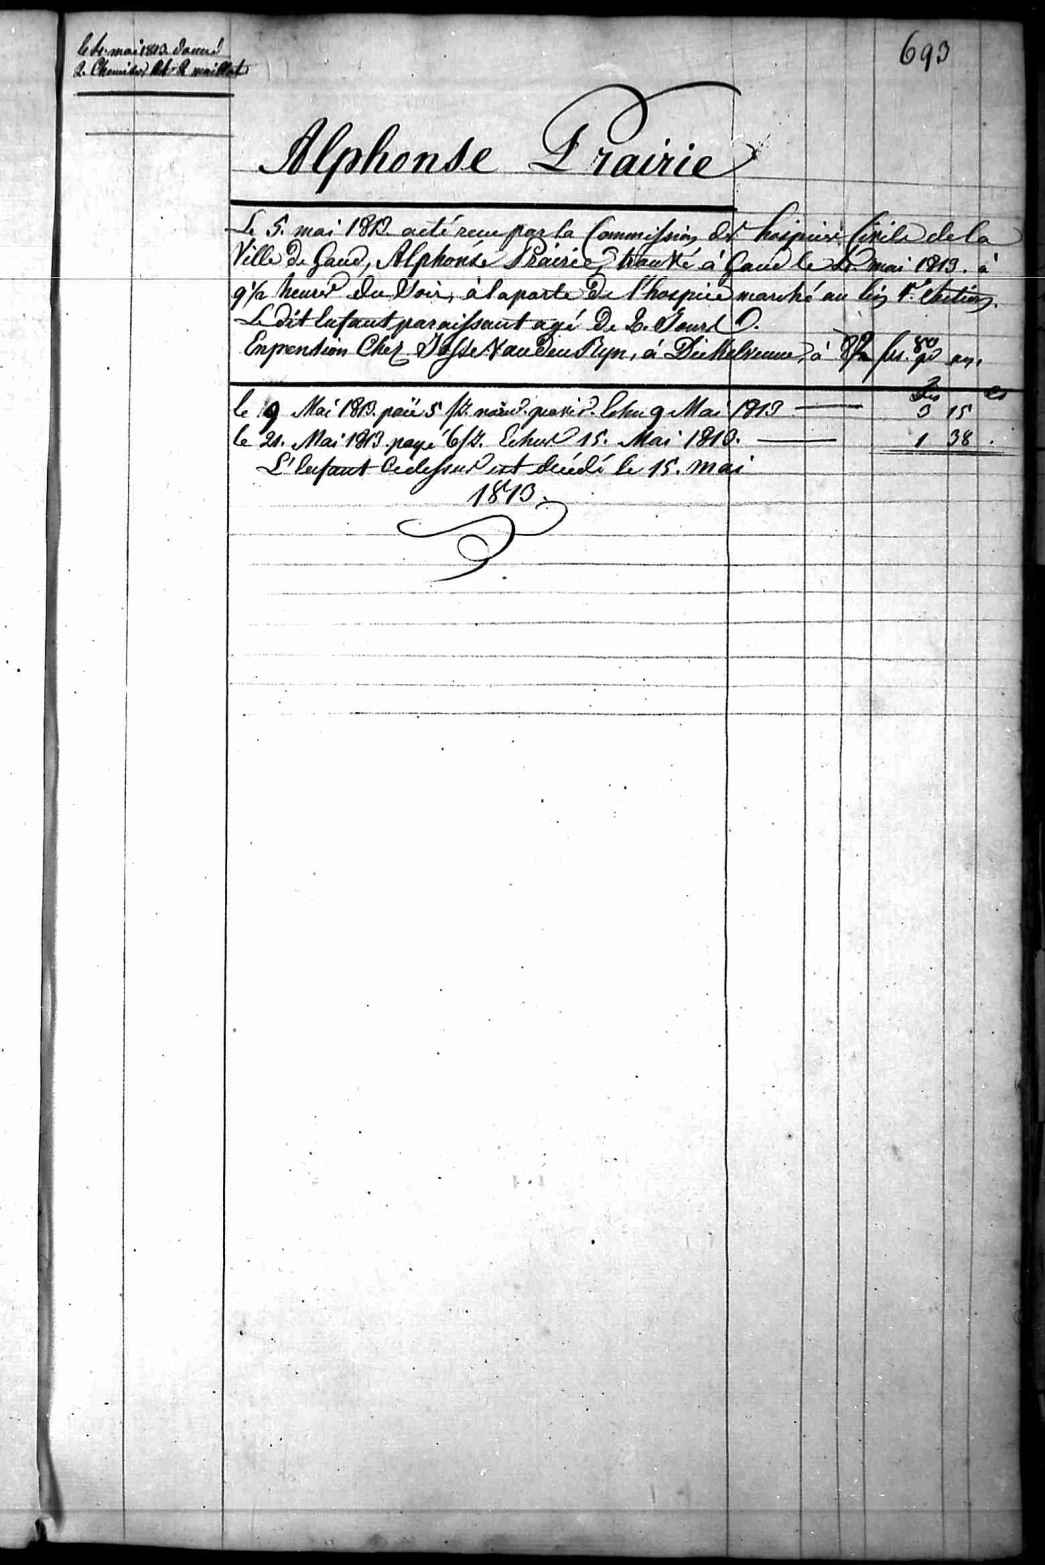 693
le 5. mai 1813 donné
2. Chemises et 2 maillots
Alphonse Prairie
Le 5. mai 1813 a été recu par la Commission des hospices Civils de la
Ville de Gand, Alphonse Prairie, trouvé à Gand le mai 1813. à
9½ heures du Soir, à la porte de l'hospice marché au
Le dit Enfant paraissant agé de 2. Jours.
En pension Chez Josse Vanden Ryn, à Dickelvenne, à frs. 80 pr an.
le 9 Mai 1813. paié 5 Echu 9 Mai 1813 3 15
le 21. Mai 1813 payé Echus 15. Mai 1813. 1 38.
L'Enfant Cidessus est décédé le 15. mai
1813.